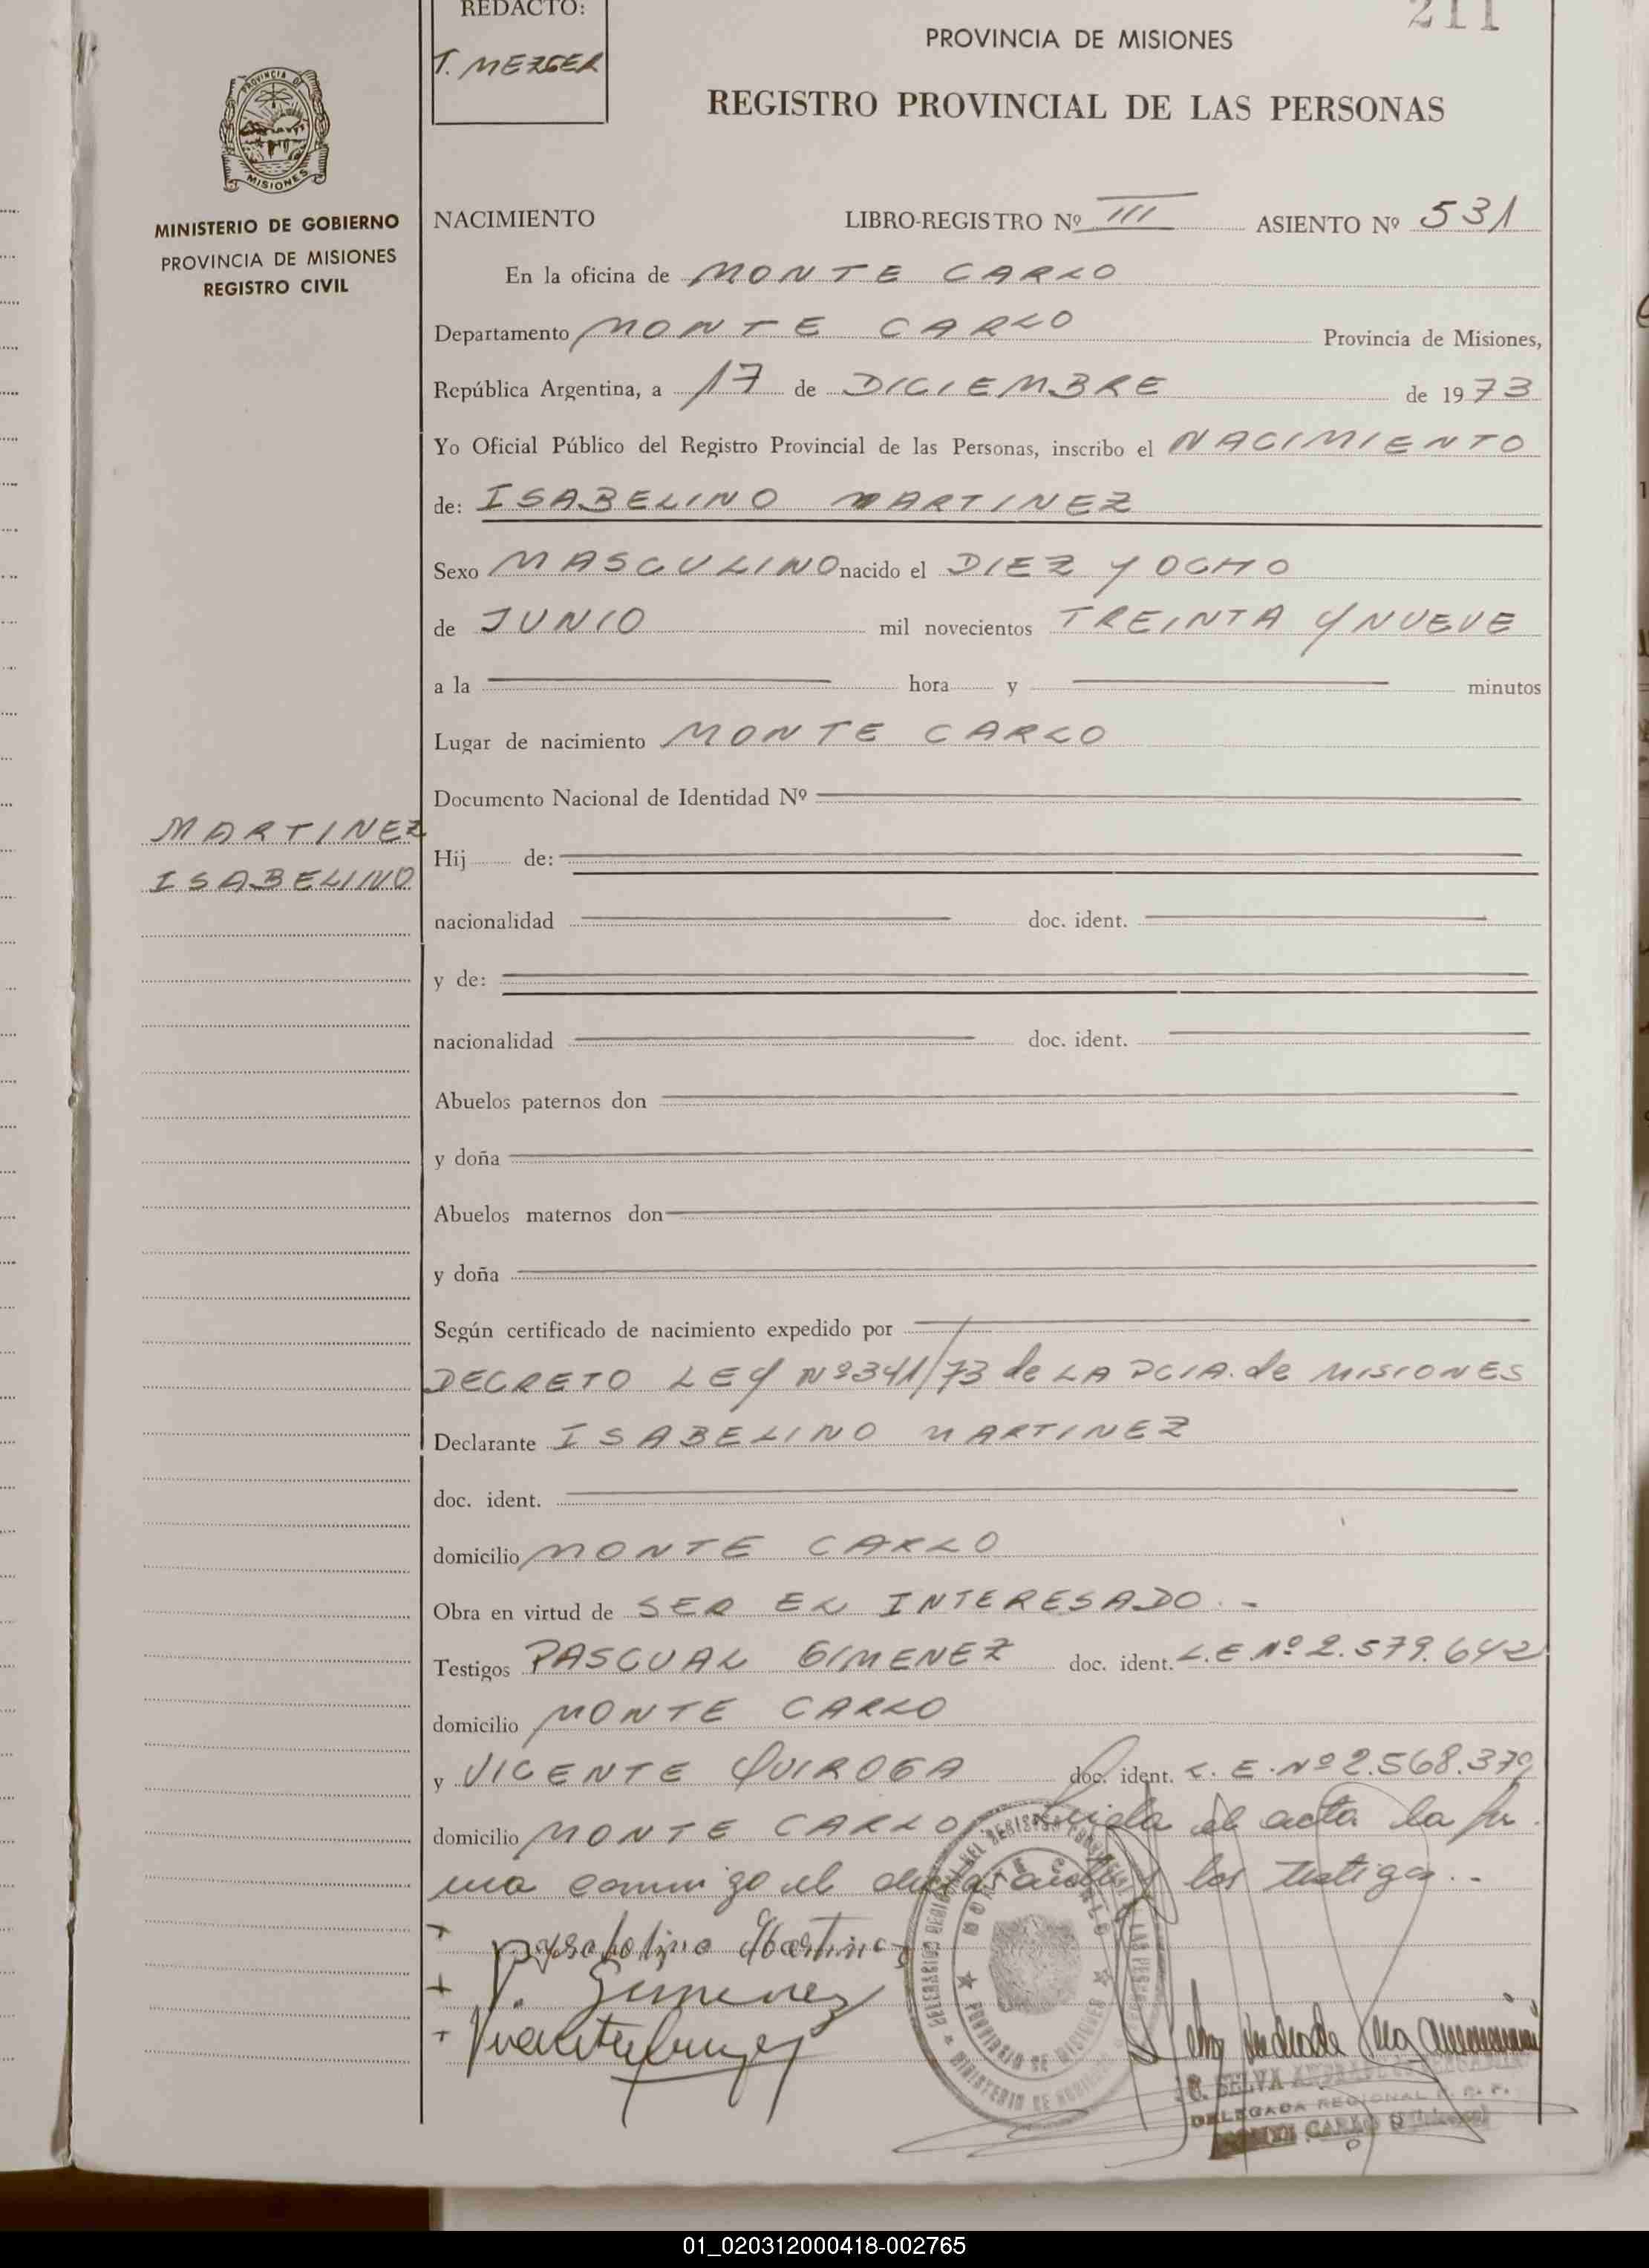 REDACTO:
T. MEZGER
211
PROVINCIA DE MISIONES
REGISTRO PROVINCIAL DE LAS PERSONAS
PROVINCIA DE
MISIONES
MINISTERIO DE GOBIERNO
PROVINCIA DE MISIONES
REGISTRO CIVIL
NACIMIENTO LIBRO-REGISTRO Nº III ASIENTO Nº 531
En la oficina de MONTE CARLO
Departamento MONTE CARLO Provincia de Misiones,
República Argentina, a 17 de DICIEMBRE de 1973
Yo Oficial Público del Registro Provincial de las Personas, inscribo el NACIMIENTO
de: ISABELINO MARTINEZ
Sexo MASCULINO nacido el DIEZ Y OCHO
de JUNIO mil novecientos TREINTA Y NUEVE
a la hora y minutos
Lugar de nacimiento MONTE CARLO
Documento Nacional de Identidad Nº
MARTINEZ
ISABELINO
Hij de:
nacionalidad doc. ident.
y de:
nacionalidad doc. ident.
Abuelos paternos don
y doña
Abuelos maternos don
y doña
Según certificado de nacimiento expedido por
DECRETO LEY Nº 341/73 de LA PCIA. de MISIONES
Declarante ISABELINO MARTINEZ
doc. ident.
domicilio MONTE CARLO
Obra en virtud de SER EL INTERESADO.-
Testigos PASCUAL GIMENEZ doc. ident. L.E Nº 2.579.642
domicilio MONTE CARLO
y VICENTE QUIROGA doc. ident. L.E. Nº 2.568.379
domicilio MONTE CARLO Leida el acta la fir
ma conmigo el declarante y los testigos.-
Martinez
P. Gimenez
SELVA
DELEGADA REGIONAL
CARLO
01_020312000418-002765